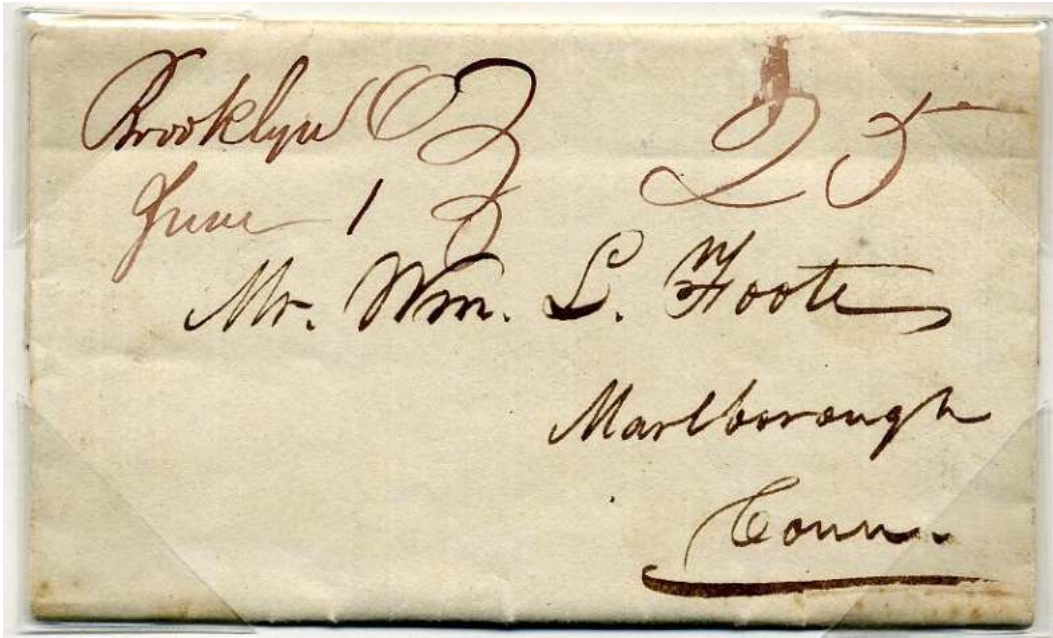 Brooklyn O 25
June 1
Mr. Wm. L. Foote
Marlborough
Conn.